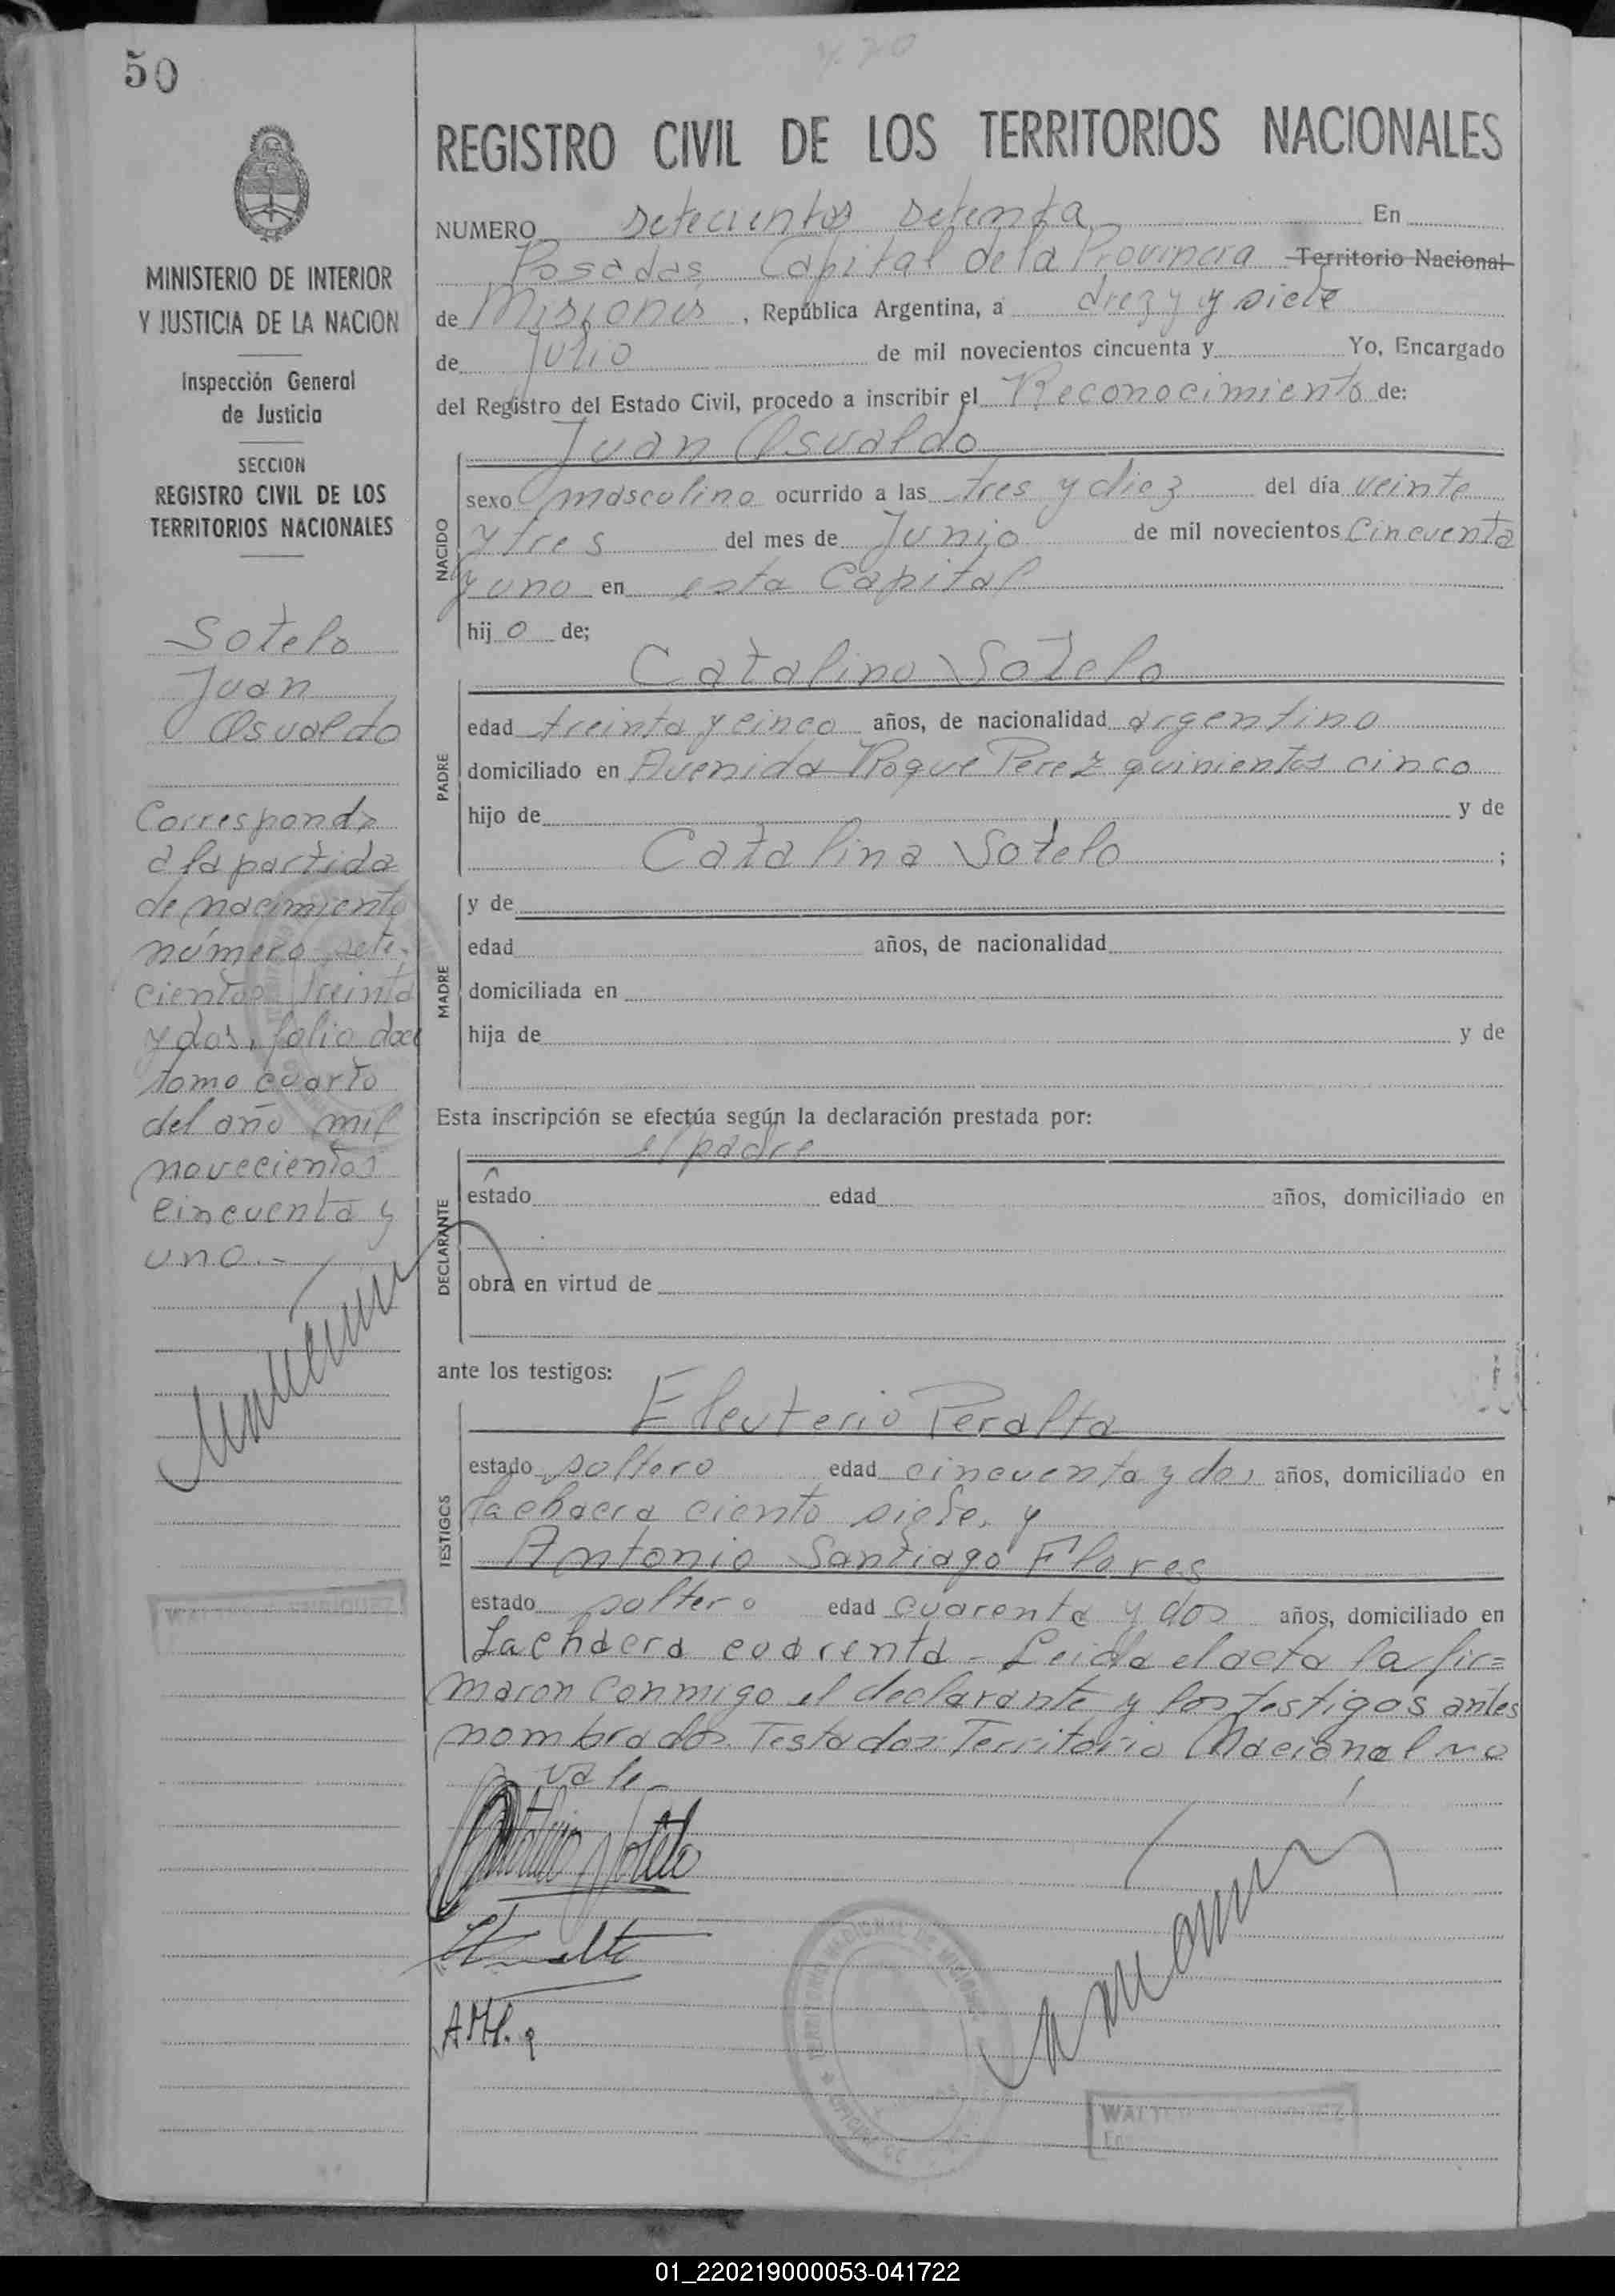 50
MINISTERIO DE INTERIOR
Y JUSTICIA DE LA NACION
Inspección General
de Justicia
SECCION
REGISTRO CIVIL DE LOS
TERRITORIOS NACIONALES
Sotelo
Juan
Osvaldo
Corresponde
a la partida
de nacimiento
número sete-
cientos treinta
y dos, folio doce
tomo cuarto
del año mil
novecientos
cincuenta y
uno.-
REGISTRO CIVIL DE LOS TERRITORIOS NACIONALES
NUMERO setecientos setenta En
Posadas, Capital de la Provincia Territorio Nacional
de Misiones, República Argentina, a diez y siete
de Julio de mil novecientos cincuenta y Yo, Encargado
del Registro del Estado Civil, procedo a inscribir el Reconocimiento de:
Juan Osvaldo
NACIDO
sexo masculino ocurrido a las tres y diez del día veinte
y tres del mes de Junio de mil novecientos cincuenta
y uno en esta Capital
hijo de;
Catalino Sotelo
PADRE
edad treinta y cinco años, de nacionalidad argentino
domiciliado en Avenida Roque Perez quinientos cinco
hijo de y de
Catalina Sotelo ;
MADRE
y de
edad años, de nacionalidad
domiciliada en
hija de y de
Esta inscripción se efectúa según la declaración prestada por:
el padre
DECLARANTE
estado edad años, domiciliado en
obra en virtud de
ante los testigos:
Eleuterio Peralta
TESTIGOS
estado soltero edad cincuenta y dos años, domiciliado en
la chacra ciento siete, y
Antonio Santiago Flores
estado soltero edad cuarenta y dos años, domiciliado en
La chacra cuarenta - Leida el acta la fir=
maron conmigo el declarante y los testigos antes
nombrados. Testados: Territorio Nacional no
vale-
Catalino Sotelo
TERRITORIO NACIONAL DE MISIONES
WALTER
01_220219000053-041722